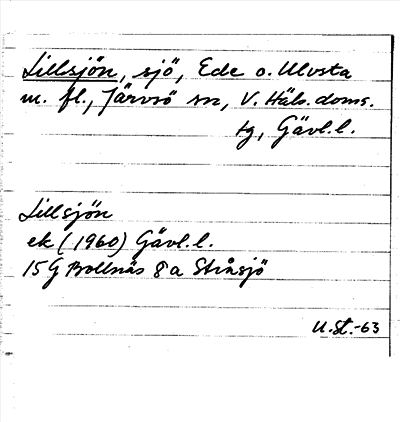 Lillsjön, sjö, Ede o. Ulvsta
m. fl., Järvsö sn, V. Häls. doms.
tg, Gävl.l.
Lillsjön
ek (1960) Gävl.l.
15G Bollnäs 8a Stråsjö
U.St.-63